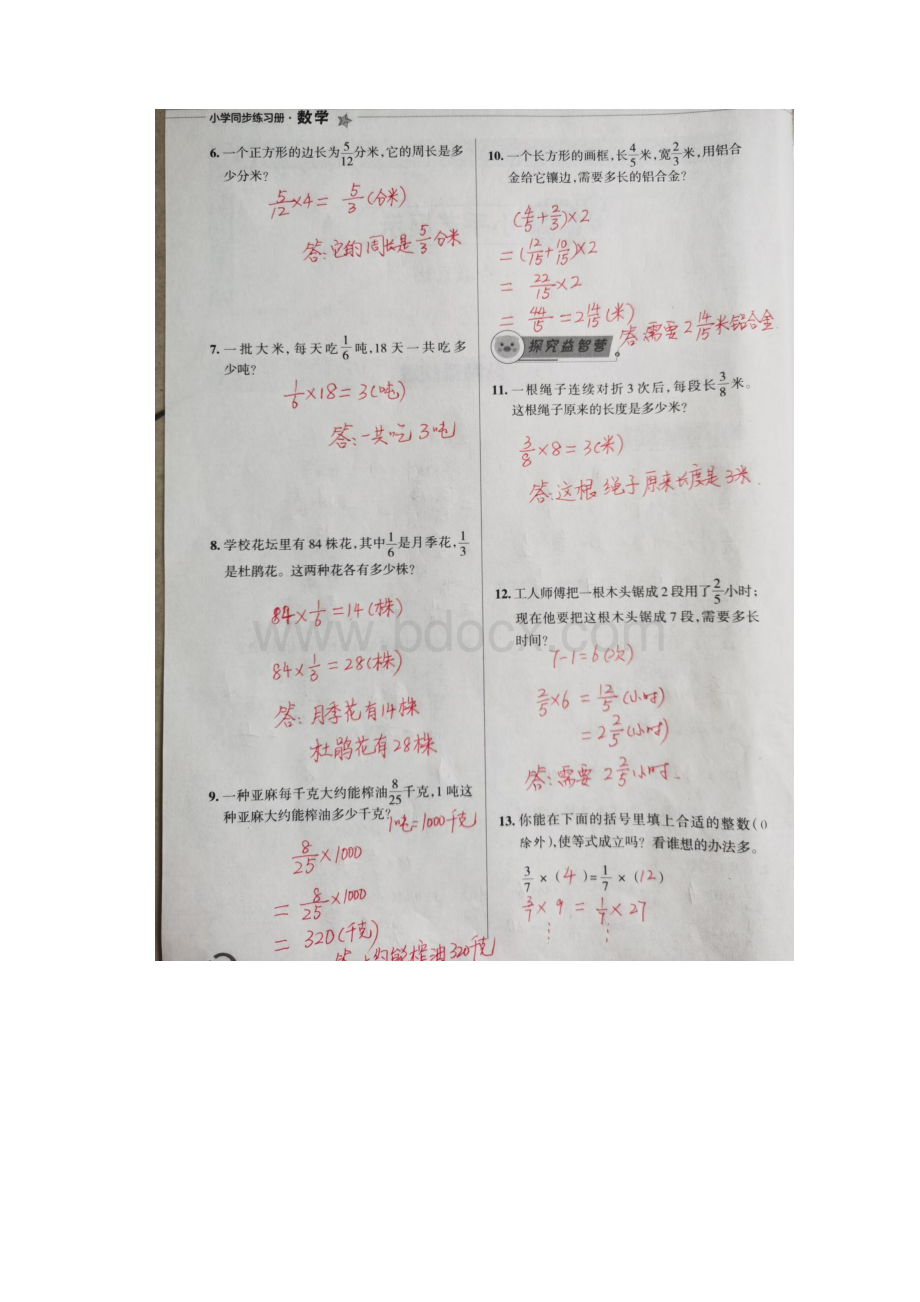 小学同步练习册·数学
6.一个正方形的边长为5/12分米,它的周长是多
少分米?
5/12×4=5/3(分米)
答:它的周长是5/3分米
7.一批大米,每天吃1/6吨,18天一共吃多
少吨?
1/6×18=3(吨)
答:一共吃3吨
8.学校花坛里有84株花,其中1/6是月季花,1/3
是杜鹃花。这两种花各有多少株?
84×1/6=14(株)
84×1/3=28(株)
答:月季花有14株
杜鹃花有28株
9.一种亚麻每千克大约能榨油8/25千克,1吨这
种亚麻大约能榨油多少千克?
1吨=1000千克
8/25×1000
=8/25×1000
=320(千克)
榨油320千克
10.一个长方形的画框,长4/5米,宽2/3米,用铝合
金给它镶边,需要多长的铝合金?
(4/5+2/3)×2
=(12/15+10/15)×2
=22/15×2
=44/15=2 14/15(米)
答:需要2 14/15米铝合金.
探究益智营
11.一根绳子连续对折3次后,每段长3/8米。
这根绳子原来的长度是多少米?
3/8×8=3(米)
答:这根绳子原来长度是3米.
12.工人师傅把一根木头锯成2段用了2/5小时;
现在他要把这根木头锯成7段,需要多长
时间?
7-1=6(次)
2/5×6=12/5(小时)
=2 2/5(小时)
答:需要2 2/5小时.
13.你能在下面的括号里填上合适的整数(0
除外),使等式成立吗?看谁想的办法多。
3/7×(4)=1/7×(12)
3/7×9=1/7×27
⋮ ⋮
www.bdocx.com